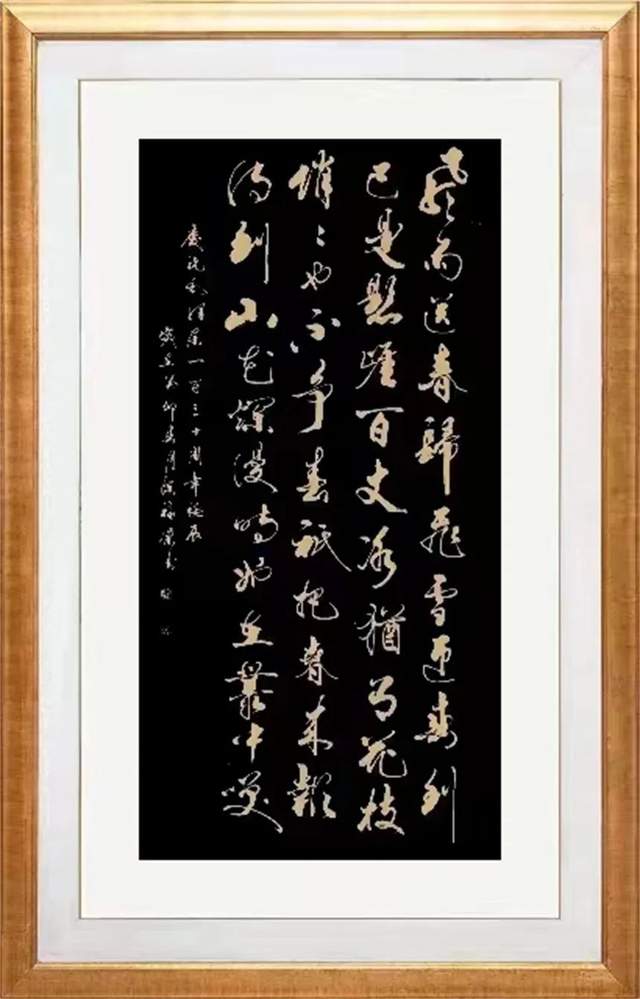 風雨送春歸飛雪迎春到
已是懸崖百丈冰猶有花枝
俏々也不爭春祇把春來報
待到山花爛漫時她在叢中笑
慶祝毛澤東一百三十周年誕辰
歲在癸卯